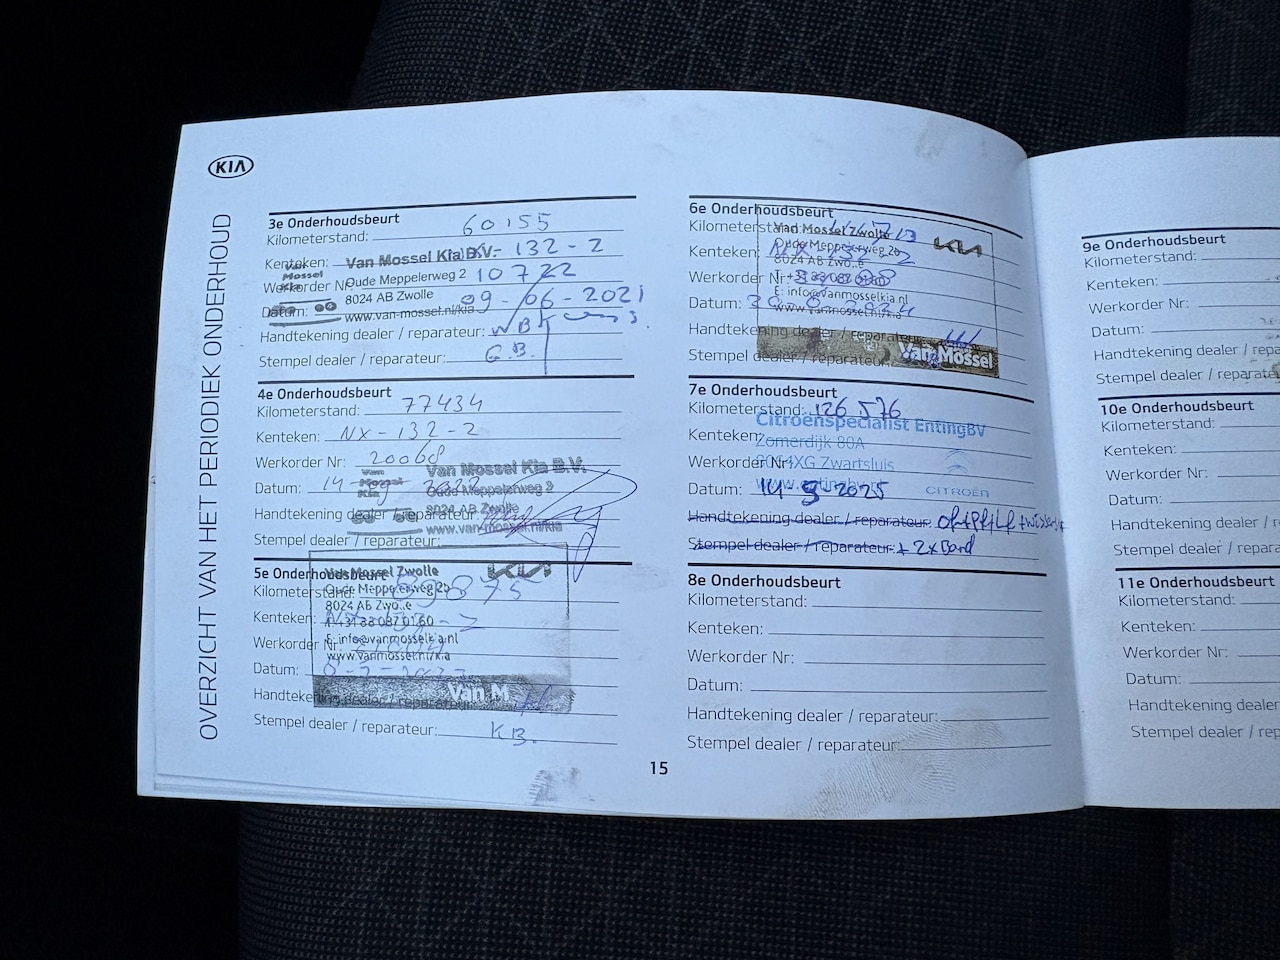 KIA
OVERZICHT VAN HET PERIODIEK ONDERHOUD
3e Onderhoudsbeurt
Kilometerstand: 60155
Kenteken: 132-2
Van Mossel Kia B.V.
Van Mossel Kia
Werkorder Nr: 10722
Oude Meppelerweg 2
8024 AB Zwolle
Datum: 09-06-2021
www.van-mossel.nl/kia
Handtekening dealer / reparateur: WB
Stempel dealer / reparateur: G.B.
4e Onderhoudsbeurt
Kilometerstand: 77434
Kenteken: NX-132-2
Werkorder Nr: 20068
Van Mossel Kia B.V.
Van Mossel Kia
Datum: 14-
Oude Meppelerweg 2
8024 AB Zwolle
Handtekening dealer / reparateur
www.van-mossel.nl/kia
Stempel dealer / reparateur:
5e Onderhoudsbeurt
Van Mossel Zwolle
KIA
Kilometerstand: 89875
Oude Meppelerweg 2b
8024 AB Zwolle
Kenteken:
Werkorder Nr:
E: info@vanmosselkia.nl
www.vanmossel.nl/kia
Datum:
Van M
Handtekening dealer / reparateur:
Stempel dealer / reparateur: KB.
6e Onderhoudsbeurt
Kilometerstand:
Van Mossel Zwolle
KIA
Oude Meppelerweg 2b
Kenteken:
8024 AB Zwolle
Werkorder Nr:
E: info@vanmosselkia.nl
Datum:
www.vanmossel.nl/kia
Handtekening dealer / reparateur:
Van Mossel
Stempel dealer / reparateur:
7e Onderhoudsbeurt
Kilometerstand: 126 576
Citroënspecialist EntingBV
Kenteken:
Zomerdijk 80A
Werkorder Nr:
8064XG Zwartsluis
Datum: 14-5-2025
CITROËN
Handtekening dealer / reparateur:
Stempel dealer / reparateur: + 2x Band
8e Onderhoudsbeurt
Kilometerstand:
Kenteken:
Werkorder Nr:
Datum:
Handtekening dealer / reparateur:
Stempel dealer / reparateur:
15
9e Onderhoudsbeurt
Kilometerstand:
Kenteken:
Werkorder Nr:
Datum:
Handtekening dealer / repa
Stempel dealer / reparate
10e Onderhoudsbeurt
Kilometerstand:
Kenteken:
Werkorder Nr:
Datum:
Handtekening dealer / r
Stempel dealer / repara
11e Onderhoudsbeurt
Kilometerstand:
Kenteken:
Werkorder Nr:
Datum:
Handtekening dealer
Stempel dealer / rep